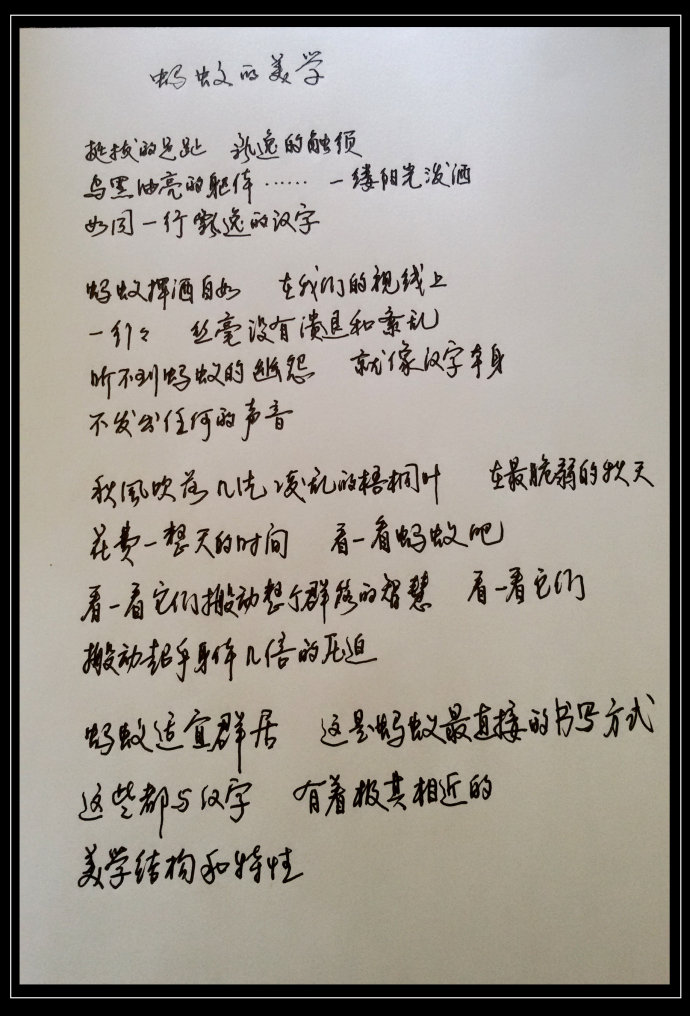 蚂蚁的美学
挺拔的足趾 飘逸的触须
乌黑油亮的躯体…… 一缕阳光泼洒
如同一行飘逸的汉字
蚂蚁挥洒自如 在我们的视线上
一行行 丝毫没有溃退和紊乱
听不到蚂蚁的幽怨 就像汉字本身
不发出任何的声音
秋风吹落几片凌乱的梧桐叶 在最脆弱的秋天
花费一整天的时间 看一看蚂蚁吧
看一看它们搬动整个群落的智慧 看一看它们
搬动超乎身体几倍的压迫
蚂蚁适宜群居 这是蚂蚁最直接的书写方式
这些都与汉字 有着极其相近的
美学结构和特性